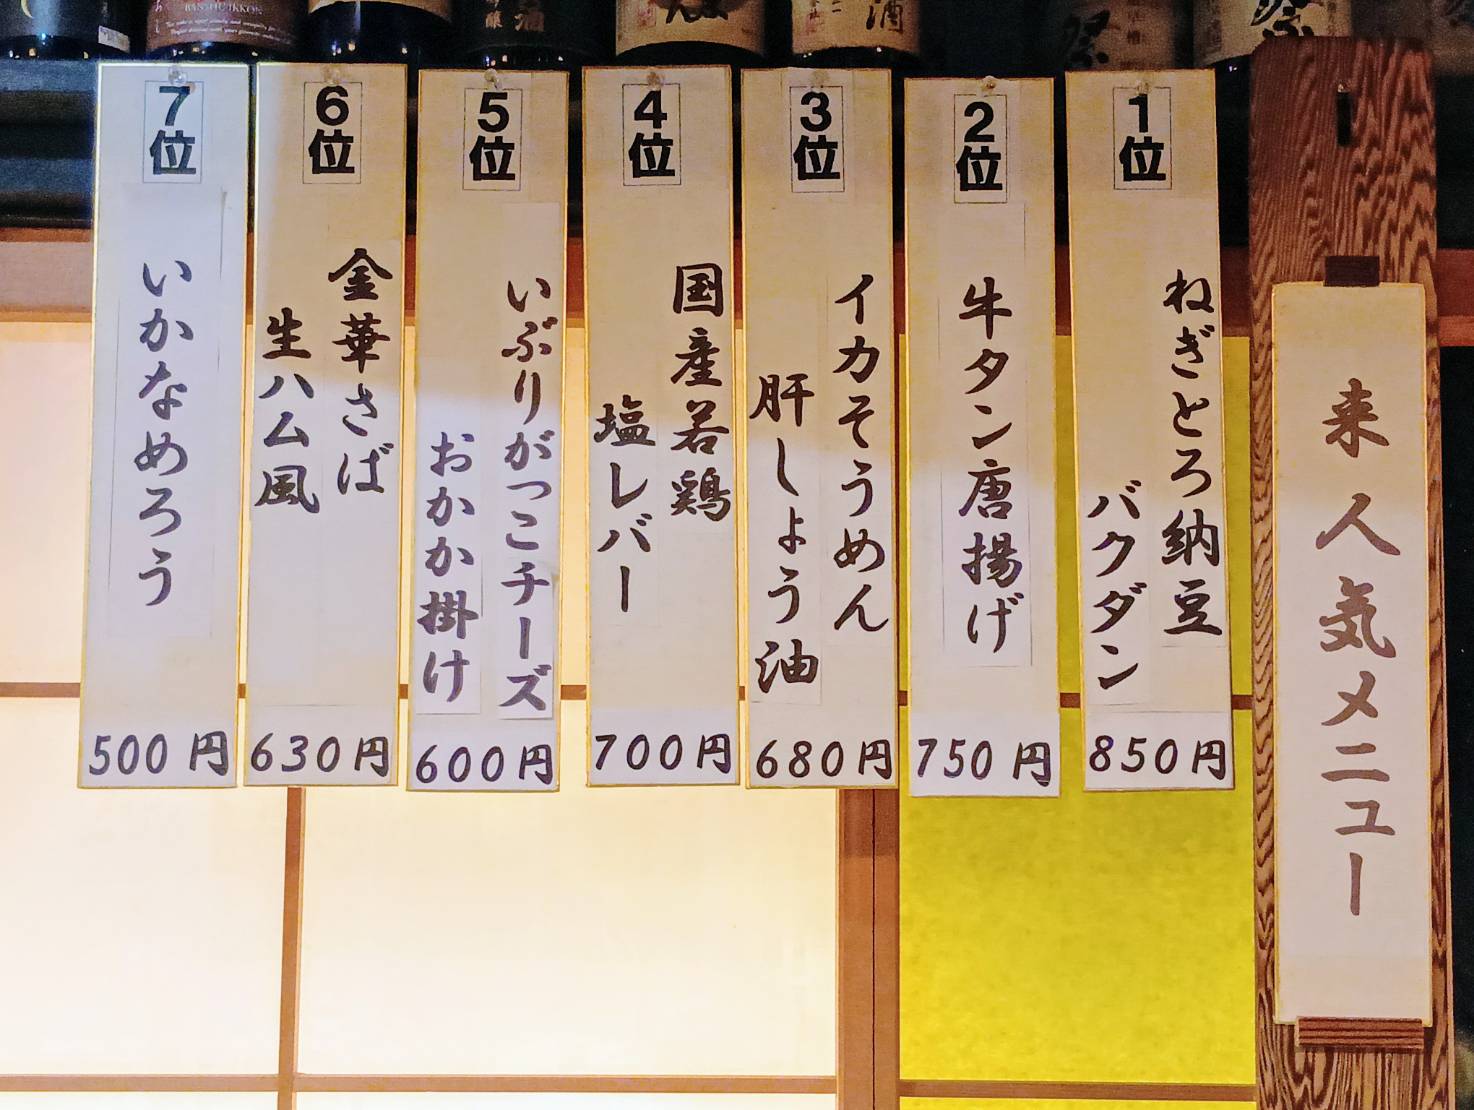 来人気メニュー
1位
ねぎとろ納豆
バクダン
850円
2位
牛タン唐揚げ
750円
3位
イカそうめん
肝しょう油
680円
4位
国産若鶏
塩レバー
700円
5位
いぶりがっこチーズ
おかか掛け
600円
6位
金華さば
生ハム風
630円
7位
いかなめろう
500円
BANSHU IKKON
酒
酒